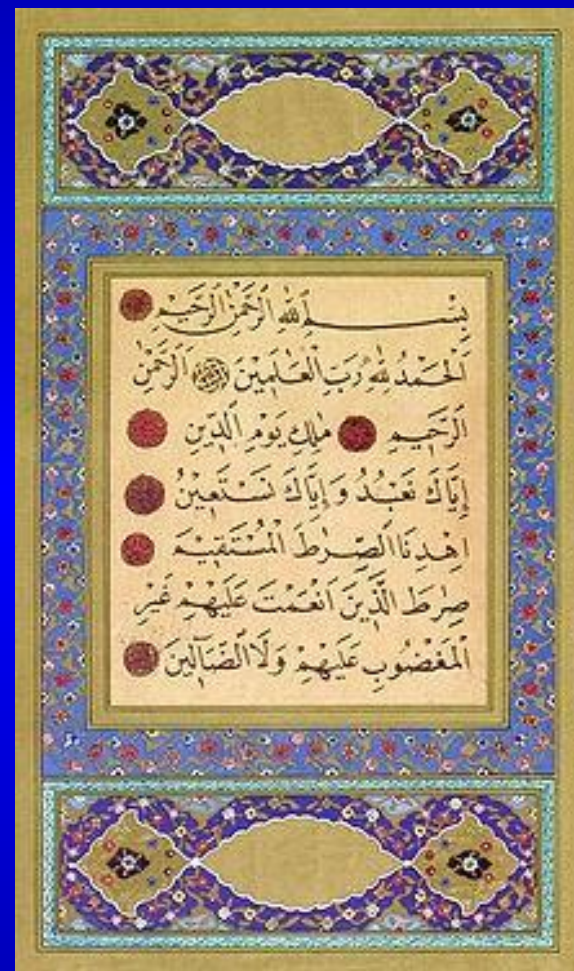 بِسْمِ اللهِ الرَّحْمٰنِ الرَّحِيمِ
اَلْحَمْدُ لِلّٰهِ رَبِّ الْعَالَمِينَ اَلرَّحْمٰنِ
الرَّحِيمِ مٰلِكِ يَوْمِ الدِّينِ
إِيَّاكَ نَعْبُدُ وَإِيَّاكَ نَسْتَعِينُ
اِهْدِنَا الصِّرٰطَ الْمُسْتَقِيمَ
صِرٰطَ الَّذِينَ اَنْعَمْتَ عَلَيْهِمْ غَيْرِ
الْمَغْضُوبِ عَلَيْهِمْ وَلَا الضَّآلِّينَ